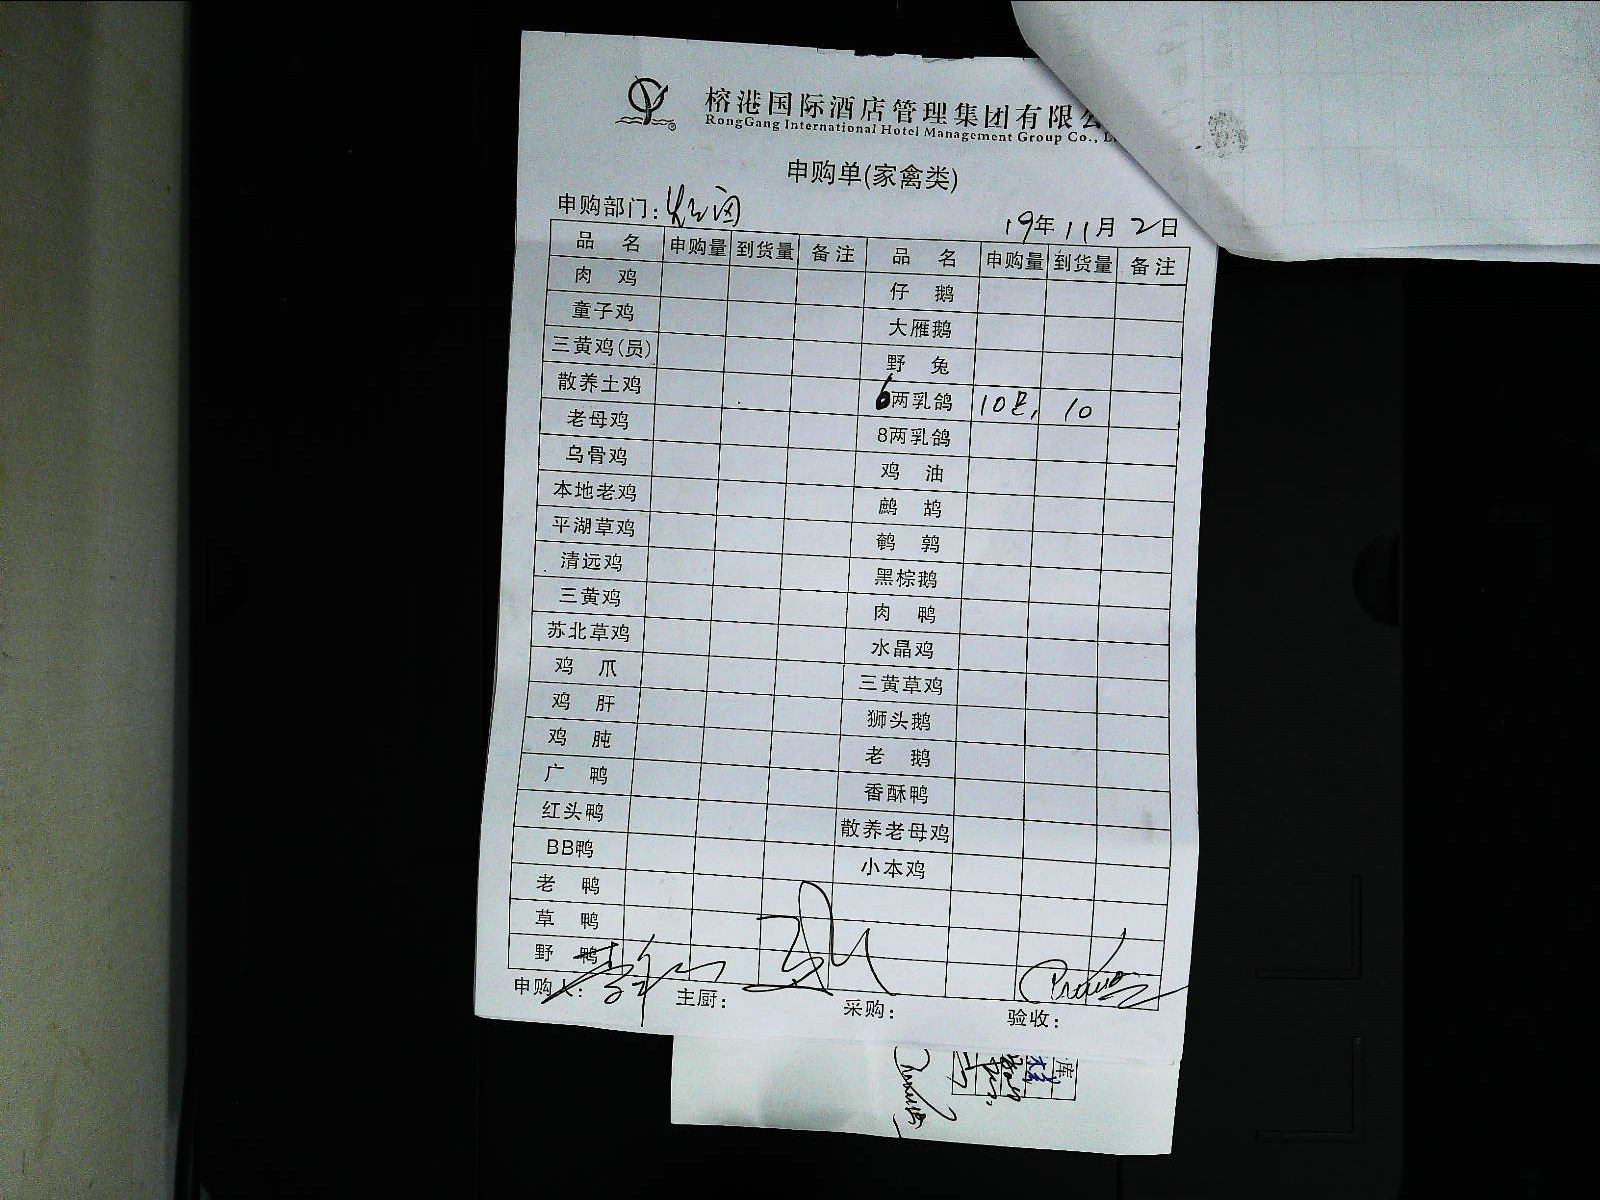 榕港国际酒店管理集团有限公
RongGang International Hotel Management Group Co., L
申购单(家禽类)
申购部门:
19年11月2日
品 名 申购量 到货量 备注 品 名 申购量 到货量 备注
肉 鸡 仔 鹅
童子鸡 大雁鹅
三黄鸡(员) 野 兔
散养土鸡 6两乳鸽 10 10
老母鸡 8两乳鸽
乌骨鸡 鸡 油
本地老鸡 鹧 鸪
平湖草鸡 鹌 鹑
清远鸡 黑棕鹅
三黄鸡 肉 鸭
苏北草鸡 水晶鸡
鸡 爪 三黄草鸡
鸡 肝 狮头鹅
鸡 肫 老 鹅
广 鸭 香酥鸭
红头鸭 散养老母鸡
BB鸭 小本鸡
老 鸭
草 鸭
野 鸭
申购人: 主厨: 采购: 验收:
库